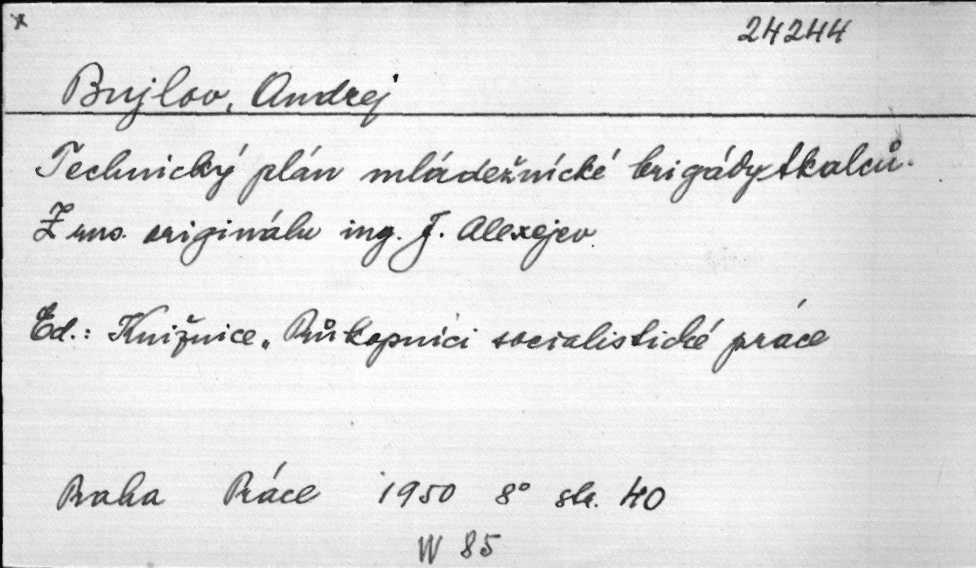 x
24244
Bujlov, Andrej
Technický plán mládežnické brigády tkalců.
Z rus. originálu ing. J. Alexejev
Ed.: Knižnice „Průkopníci socialistické práce
Praha Práce 1950 8° str. 40
W 85